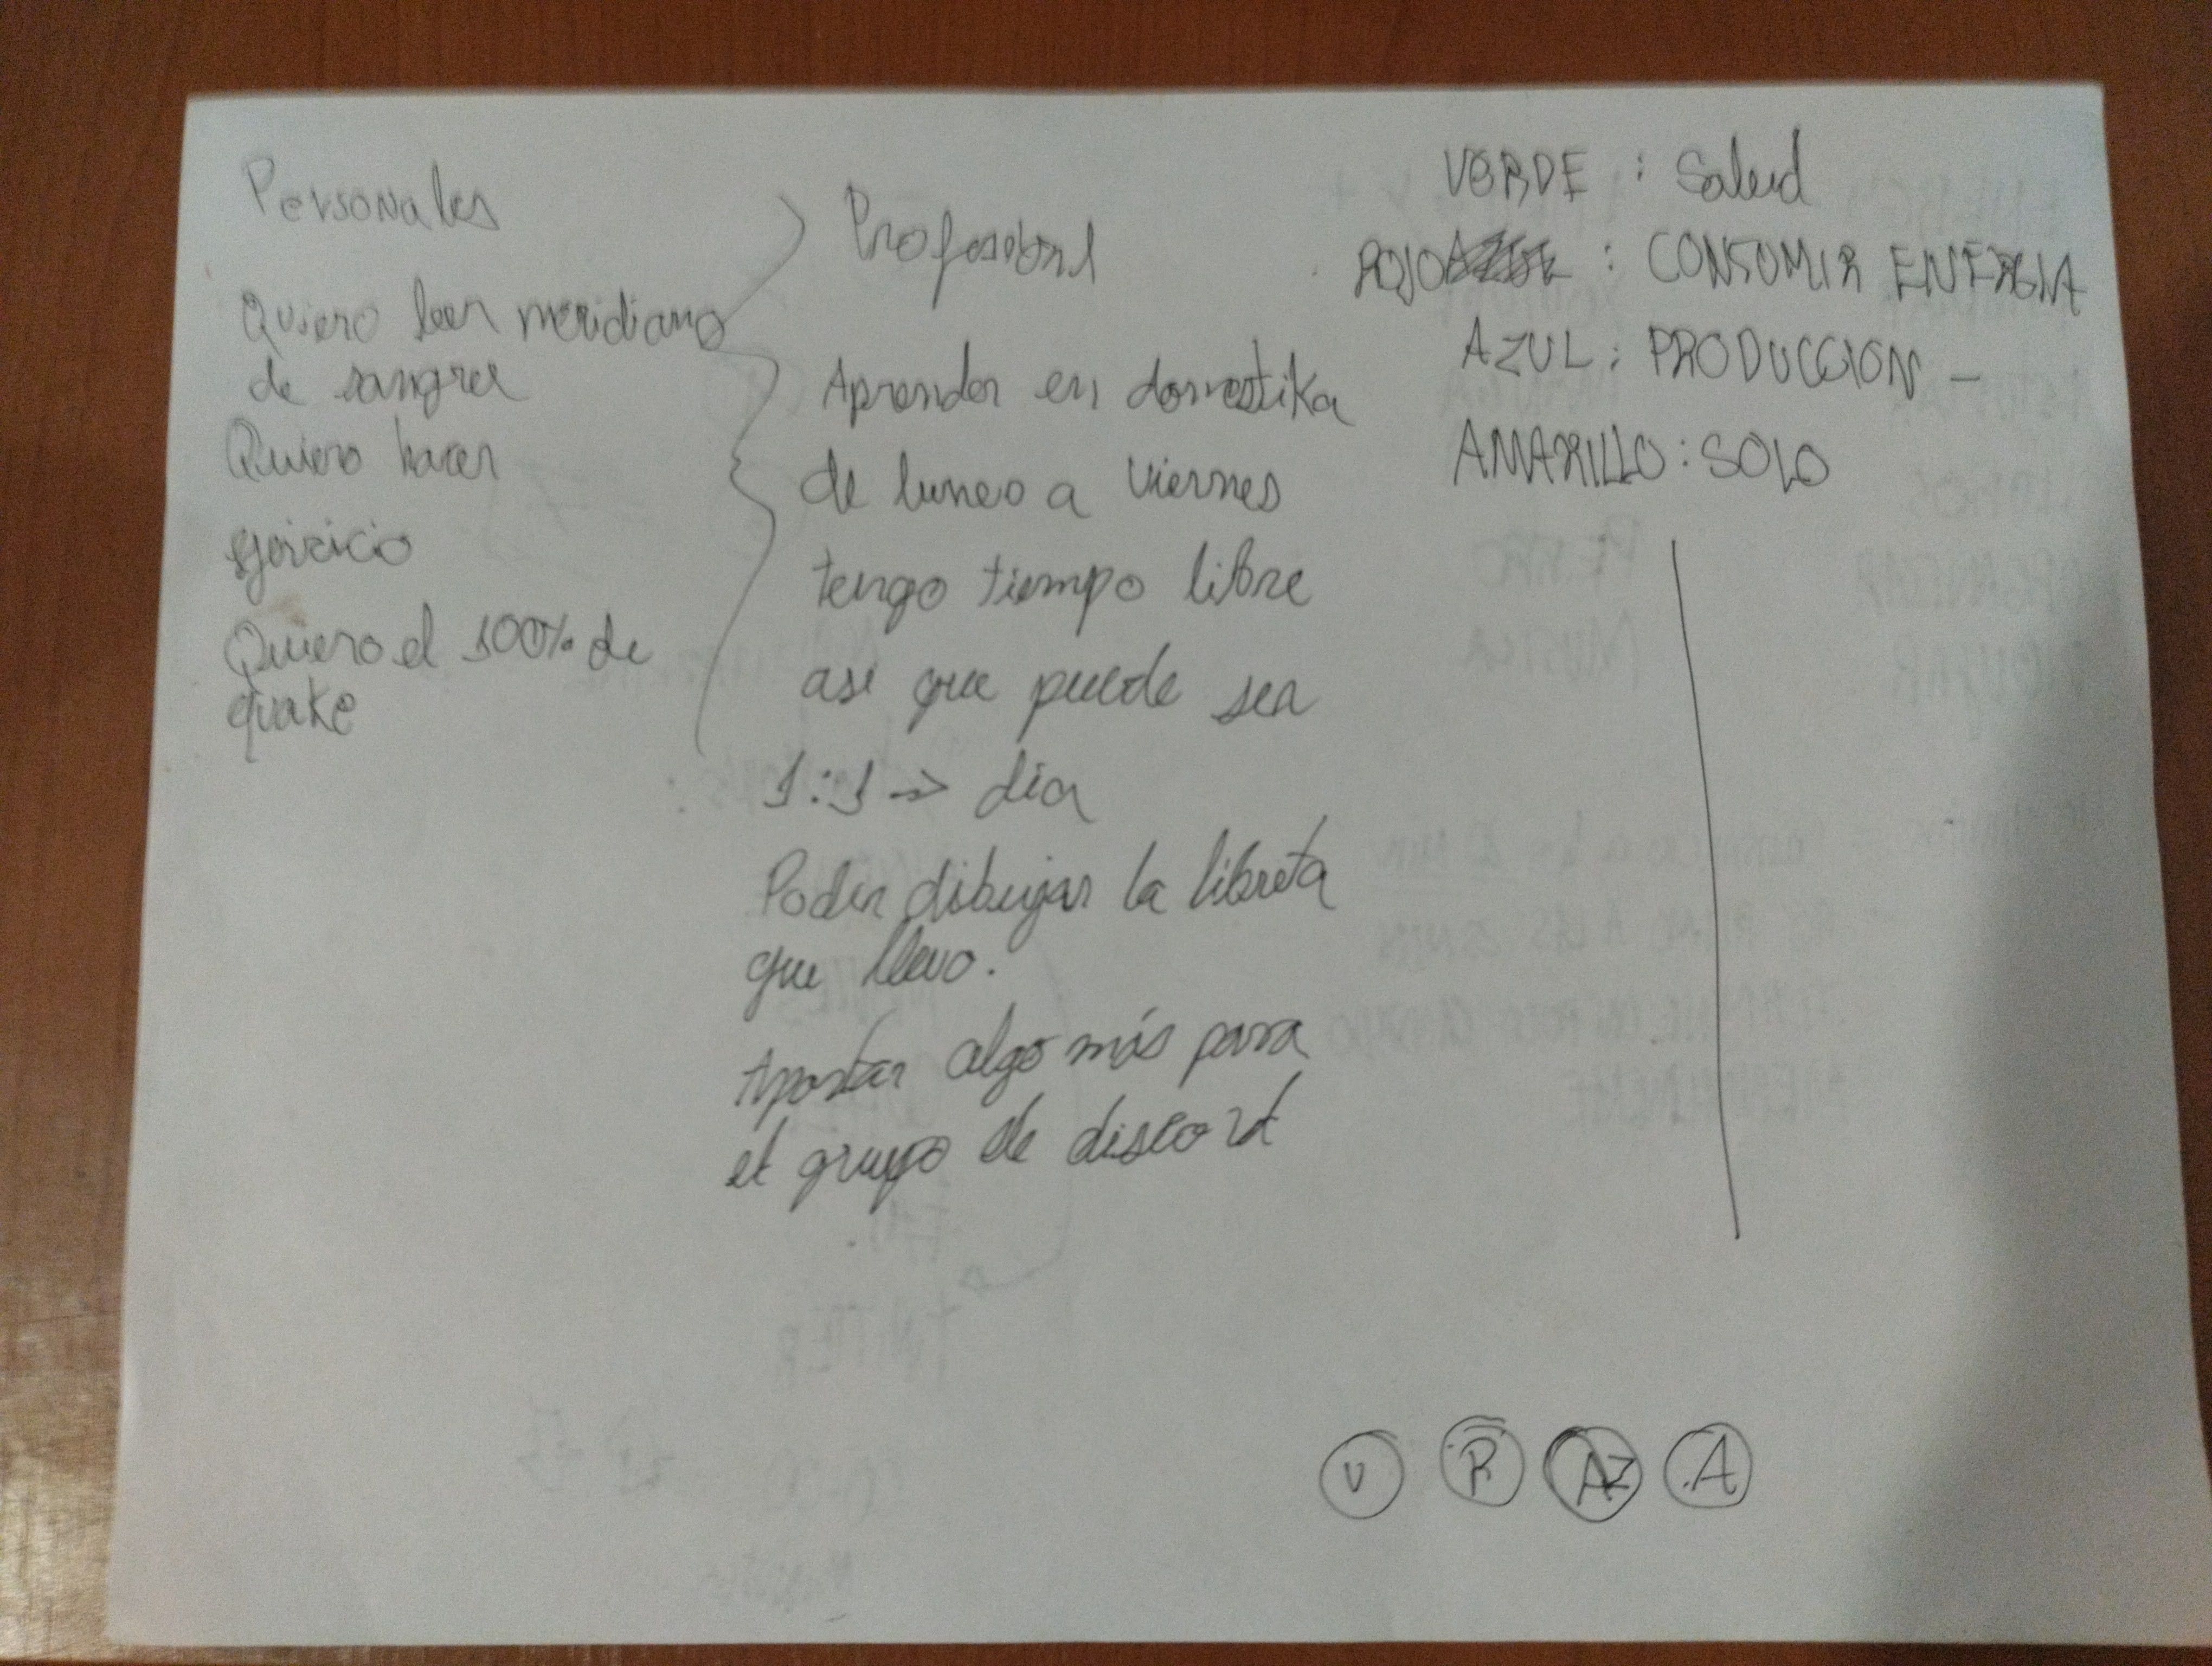 Personales
Quiero leer meridiano
de sangre
Quiero hacer
ejercicio
Quiero el 100% de
quake
Profesional
Aprender en domestika
de lunes a viernes
tengo tiempo libre
asi que puede ser
1:1 -> día
Poder dibujar la libreta
que llevo.
Aportar algo más para
el grupo de discord
VERDE : Salud
ROJO : CONSUMIR ENERGIA
AZUL : PRODUCCION -
AMARILLO : SOLO
V R AZ A